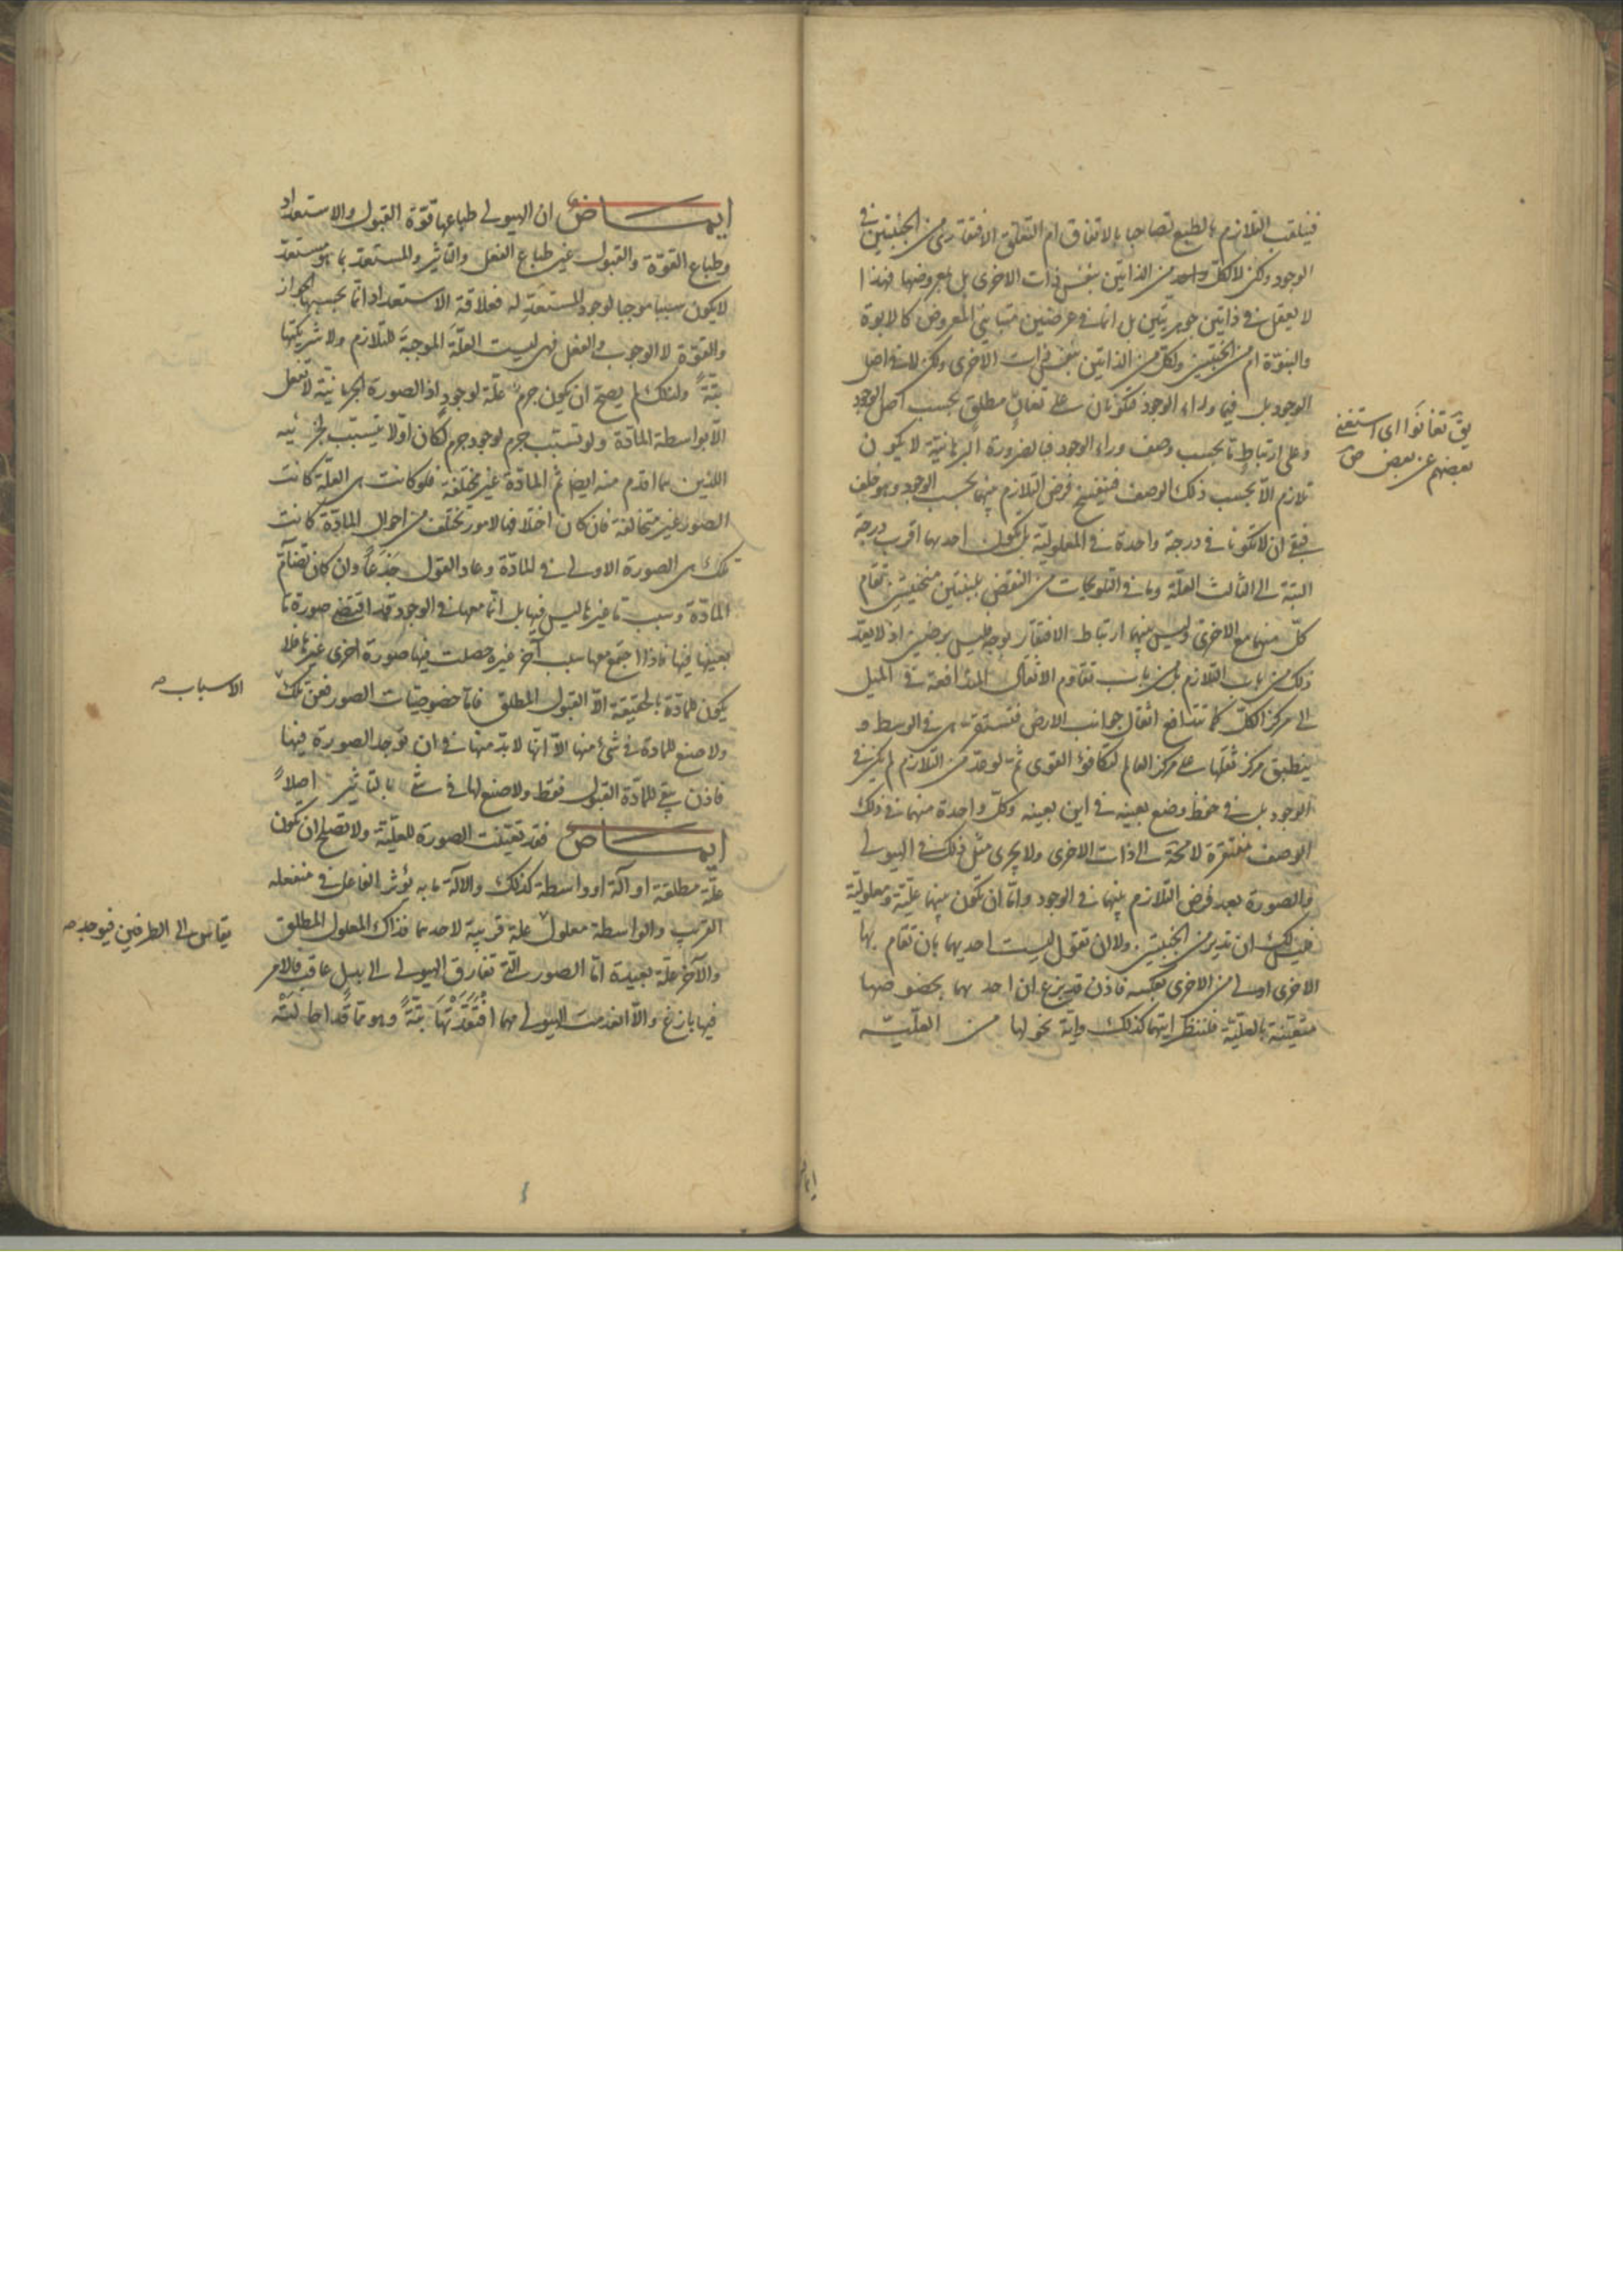 فينقلب التلازم بالطبع تصاحبا بالاتفاق ام التعلق الافتقاري من الجنبتين في
الوجود ولكن لا لكل واحد من الذاتين بنفس ذات الاخرى بل بعروضها فهذا
لا يعقل في ذاتين جوهريتين بل انما في عرضين متبايني المعروض كالابوة
والبنوة ام من الجنبتين ولكل من الذاتين بنفس ذات الاخرى ولكن لا في اصل
الوجود بل فيما وراء الوجود فتكونان على تغانٍ مطلق بحسب اصل الوجود
وعلى ارتباط ما بحسب وصف وراء الوجود فبالضرورة البرهانية لا يكون
تلازم الا بحسب ذلك الوصف فينفسخ فرض التلازم بينهما بحسب الوجود وهو خلف
فبقي ان لا تكونا في درجة واحدة في المعلولية بل تكون احدهما اقرب درجة
البتة الى الثالث العلة وما في التلويحات من النقض بلبنتين منحنيتين تقام
كل منهما مع الاخرى وليس بينهما ارتباط الافتقار بوجه ليس اذ لا يعد
ذلك من باب التلازم بل من باب تقاوم الاثقال المتدافعة في الميل
الى مركز الكل كما تتدافع اثقال جوانب الارض فتستقر هي في الوسط و
ينطبق مركز ثقلها على مركز العالم لتكافؤ القوى ثم لو عد من التلازم لم يكن في
الوجود بل في حفظ وضع بعينه في اين بعينه وكل واحدة منهما في ذلك
الوصف مفتقرة لا محة الى ذات الاخرى ولا يجرى مثل ذلك في الهيولى
والصورة بعد فرض التلازم بينهما في الوجود واما ان تكون بينهما علية ومعلولية
فليس لك ان تدير من الجنبتين ولا ان تقول ليست احديهما بان تقام بها
الاخرى اولى من الاخرى بعكسه فاذن قد بزغ ان احد يهما بخصوصها
متعينة بالعلية فلننظر ايتهما كذلك واية نحو لها من العلية
يق تغانَوْا اى استغنى
بعضهم عن بعض ص
ايماض ان الهيولى طباعها قوة القبول والاستعداد
وطباع القوة والقبول غير طباع الفعل والتاثير والمستعد بما هو مستعد
لا يكون سببا موجبا لوجود المستعد له فعلاقة الاستعداد انما بحسبها الجواز
والقوة لا الوجوب والفعل فهى ليست العلة الموجبة للتلازم ولا شريكتها
بتةً ولذلك لم يصح ان يكون جرم علة لوجود اذ الصورة الجرمانية لا تفعل
الا بواسطة المادة ولو تسبب جرم لوجود جرم لكان اولا يتسبب لجزئيه
اللذين هما اقدم منه ايضا ثم المادة غير مختلفة فلو كانت هى العلة كانت
الصور غير متخالفة فان كان اختلافها لامور تختلف من احوال المادة كانت
تلك هى الصورة الاولى في المادة وعاد القول جذعاً وان كان تضامّ
المادة وسبب ما غيرها ليس فيها بل انما معها في الوجود قد اقتضى صورة ما
بعينها فيها فاذا اجتمع معها سبب آخر غيره حصلت فيها صورة اخرى غيرها فلا
يكون للمادة بالحقيقة الا القبول المطلق فاما خصوصيات الصور فعن تلك
ولا صنع للمادة في شئ منها الا انها لا بد منها في ان توجد الصورة فيها
فاذن بقي للمادة القبول فقط ولا صنع لها في شئ بالتاثير اصلاً
ايماض فقد تعينت الصورة للعلية ولا تصلح ان تكون
علة مطلقة او آلة او واسطة كذلك والآلة ما به يؤثر الفاعل في منفعله
القريب والواسطة معلول علة قريبة لاحدهما فذاك المعلول المطلق
والآخر علة بعيدة اما الصور التي تفارق الهيولى الى بدل عاقب فالامر
فيها بازغ والا انعدمت الهيولى مهما افتقدتها بتةً وهو مما قد احالته
الاسباب صه
يقاس الى الطرفين فيوجد صه